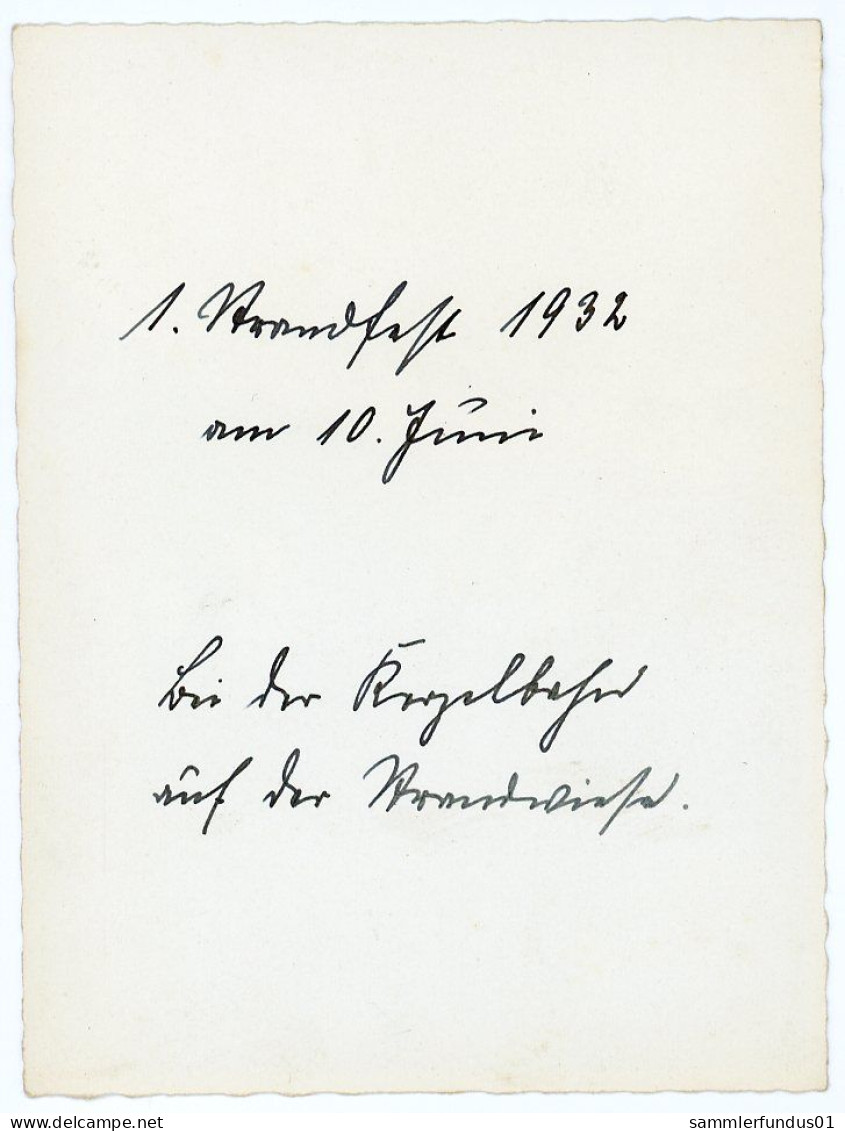 1. Strandfest 1932
am 10. Juni
Bei der Kegelbahn
auf der Strandwiese.
www.delcampe.net
sammlerfundus01